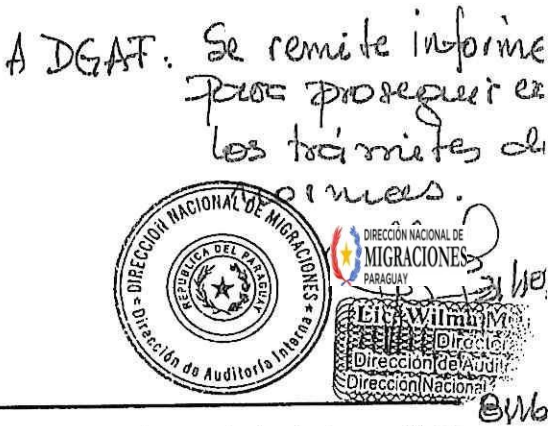 A DGAF. Se remite informe
para proseguir
los trámites de
normas.
DIRECCIÓN NACIONAL DE MIGRACIONES
REPUBLICA DEL PARAGUAY
Dirección de Auditoría Interna
DIRECCIÓN NACIONAL DE
MIGRACIONES
PARAGUAY
Lic. Wilma M
Director
Dirección de Audit
Dirección Nacional